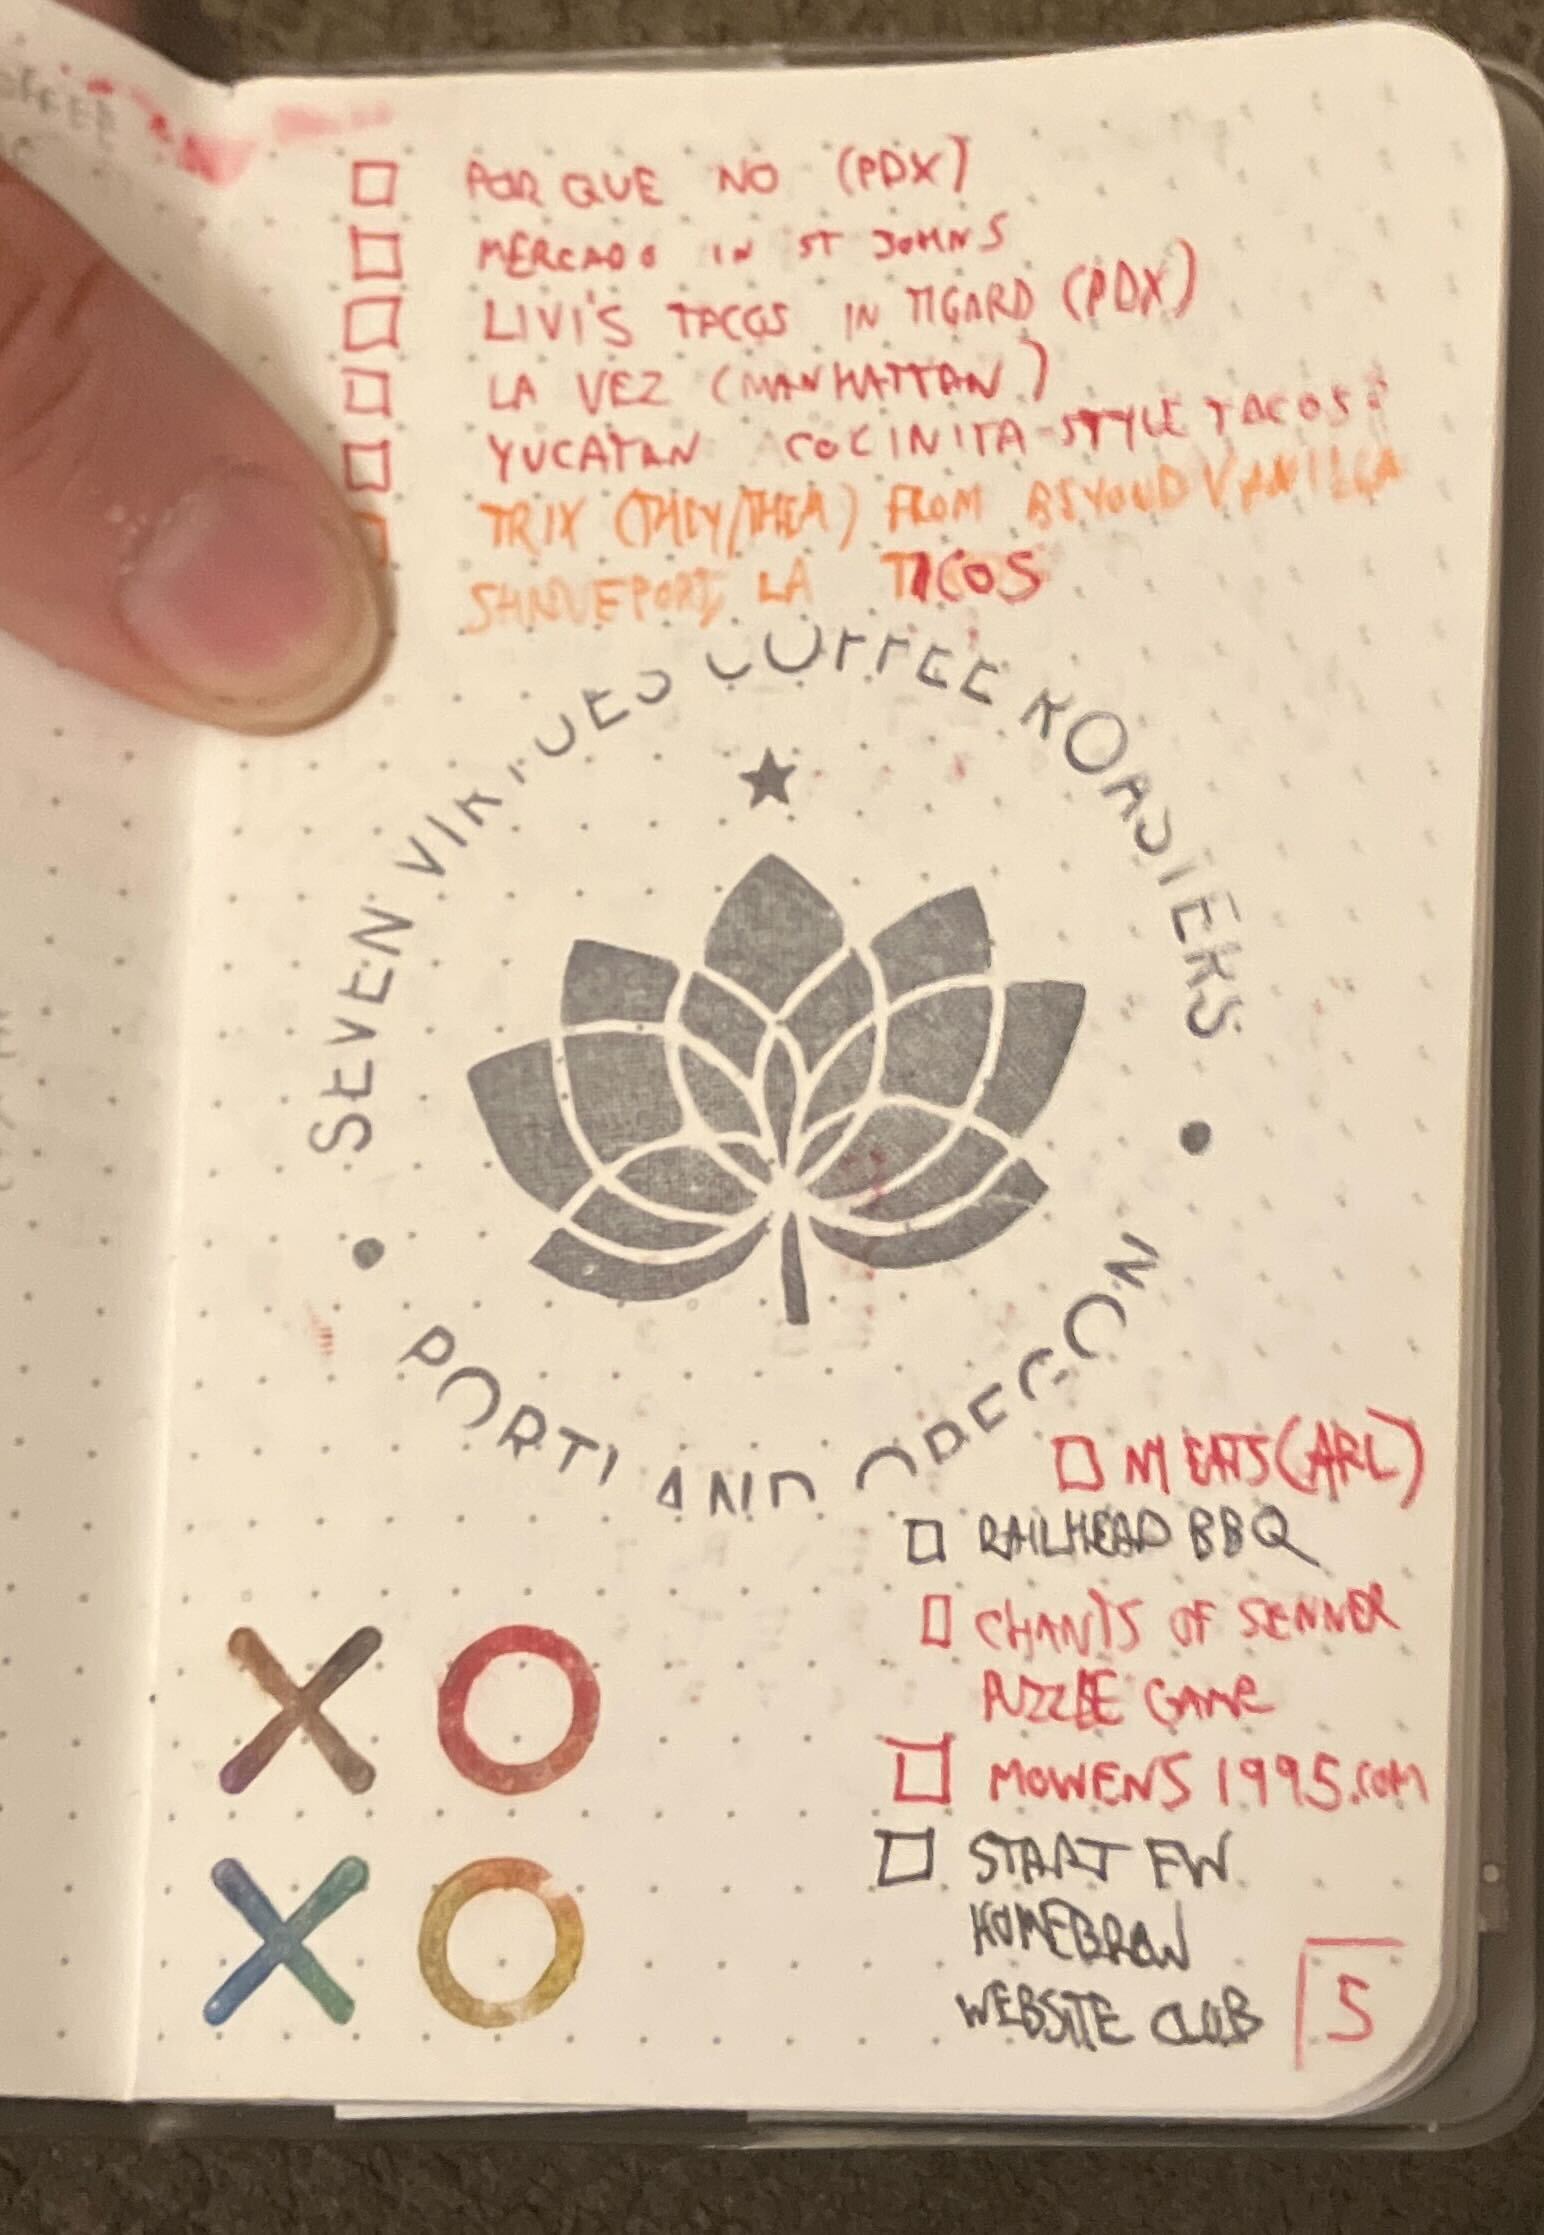 POR QUE NO (PDX)
MERCADO IN ST JOHNS
LIVI'S TACOS IN TIGARD (PDX)
LA VEZ (MANHATTAN)
YUCATAN COCINITA STYLE TACOS?
TRIX (THEY/THEM) FROM BEYOND VANILLA
SHREVEPORT, LA TICOS
SEVEN VIRTUES COFFEE ROASTERS
PORTLAND OREGON
NY EATS (ARL)
RAILHEAD BBQ
CHANTS OF SENNER
PUZZLE GAME
MOWENS1995.COM
START FW
HOMEBREW
WEBSITE CLUB
5
XO
XO